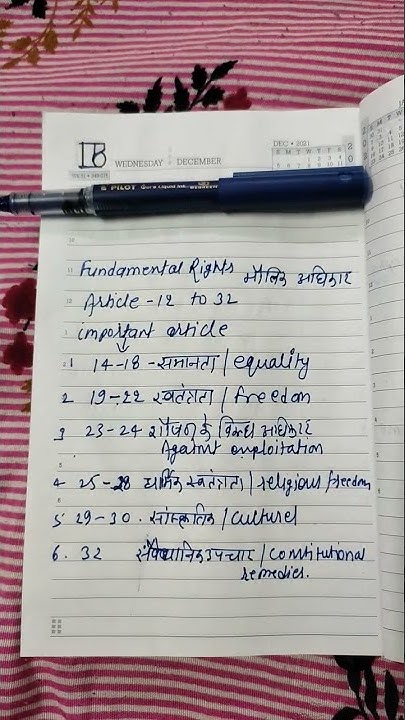 IB
WEDNESDAY DECEMBER
DEC • 2021
S M T W T F S
PILOT
Fundamental Rights मौलिक अधिकार
Article - 12 to 32
important article
1 14-18 - समानता / equality
2 19-22 स्वतंत्रता / freedom
3 23-24 शोषण के विरुद्ध अधिकार
Against exploitation
4 25-28 धार्मिक स्वतंत्रता / religious freedom
5 29-30 . सांस्कृतिक / Culturel
6. 32 संवैधानिक उपचार / Constitutional
remedies.